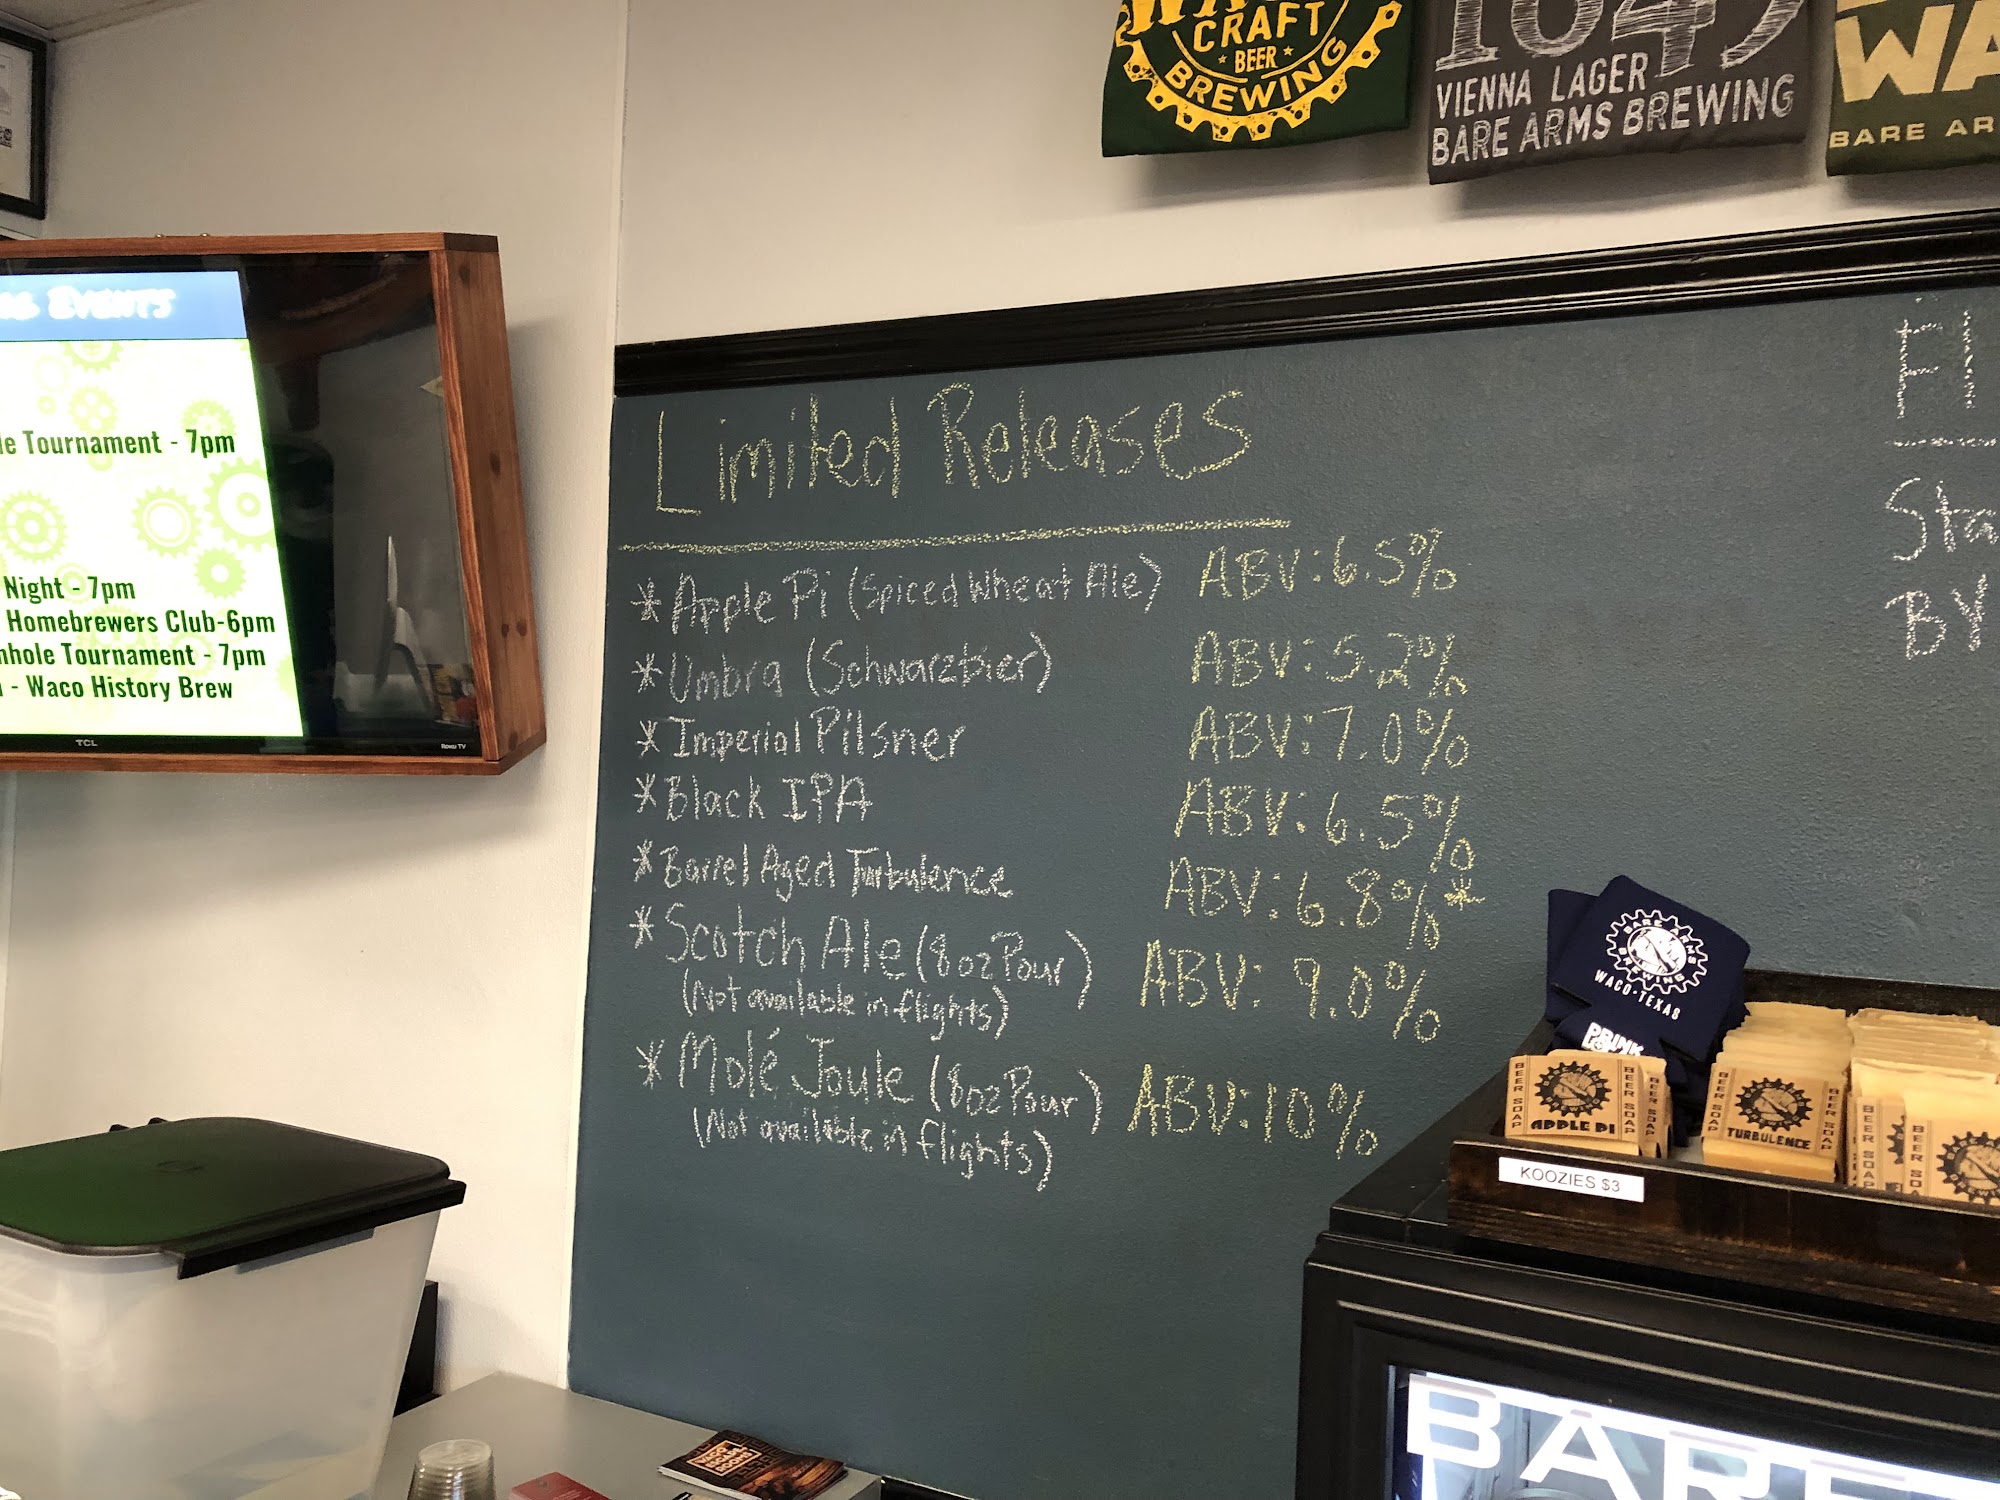 CRAFT
BEER
BREWING
1849
VIENNA LAGER
BARE ARMS BREWING
WA
BARE AR
EVENTS
le Tournament - 7pm
Night - 7pm
Homebrewers Club-6pm
nhole Tournament - 7pm
- Waco History Brew
TCL
Roku TV
Limited Releases
*Apple Pi (Spiced Wheat Ale) ABV: 6.5%
*Umbra (Schwarzbier) ABV: 5.2%
*Imperial Pilsner ABV: 7.0%
*Black IPA ABV: 6.5%
*Barrel Aged Turbulence ABV: 6.8%*
*Scotch Ale (8oz Pour) ABV: 9.0%
(Not available in flights)
*Molé Joule (8oz Pour) ABV: 10%
(Not available in flights)
Fl
Sta
BY
BARE ARMS
BREWING
WACO-TEXAS
DRINK
BEER SOAP
APPLE PI
BEER SOAP
BEER SOAP
TURBULENCE
BEER SOAP
BEER SOAP
BEER SOAP
KOOZIES $3
WACO
ESCAPE
ROOMS
BARE